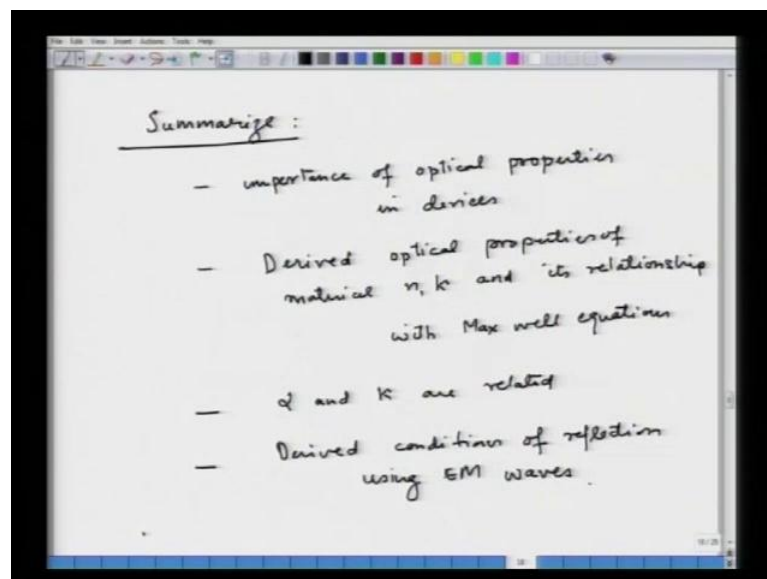 File Edit View Insert Actions Tools Help
Summarize :
— importance of optical properties
in devices
— Derived optical properties of
material n, k and its relationship
with Maxwell equations
— α and K are related
— Derived conditions of reflection
using EM waves.